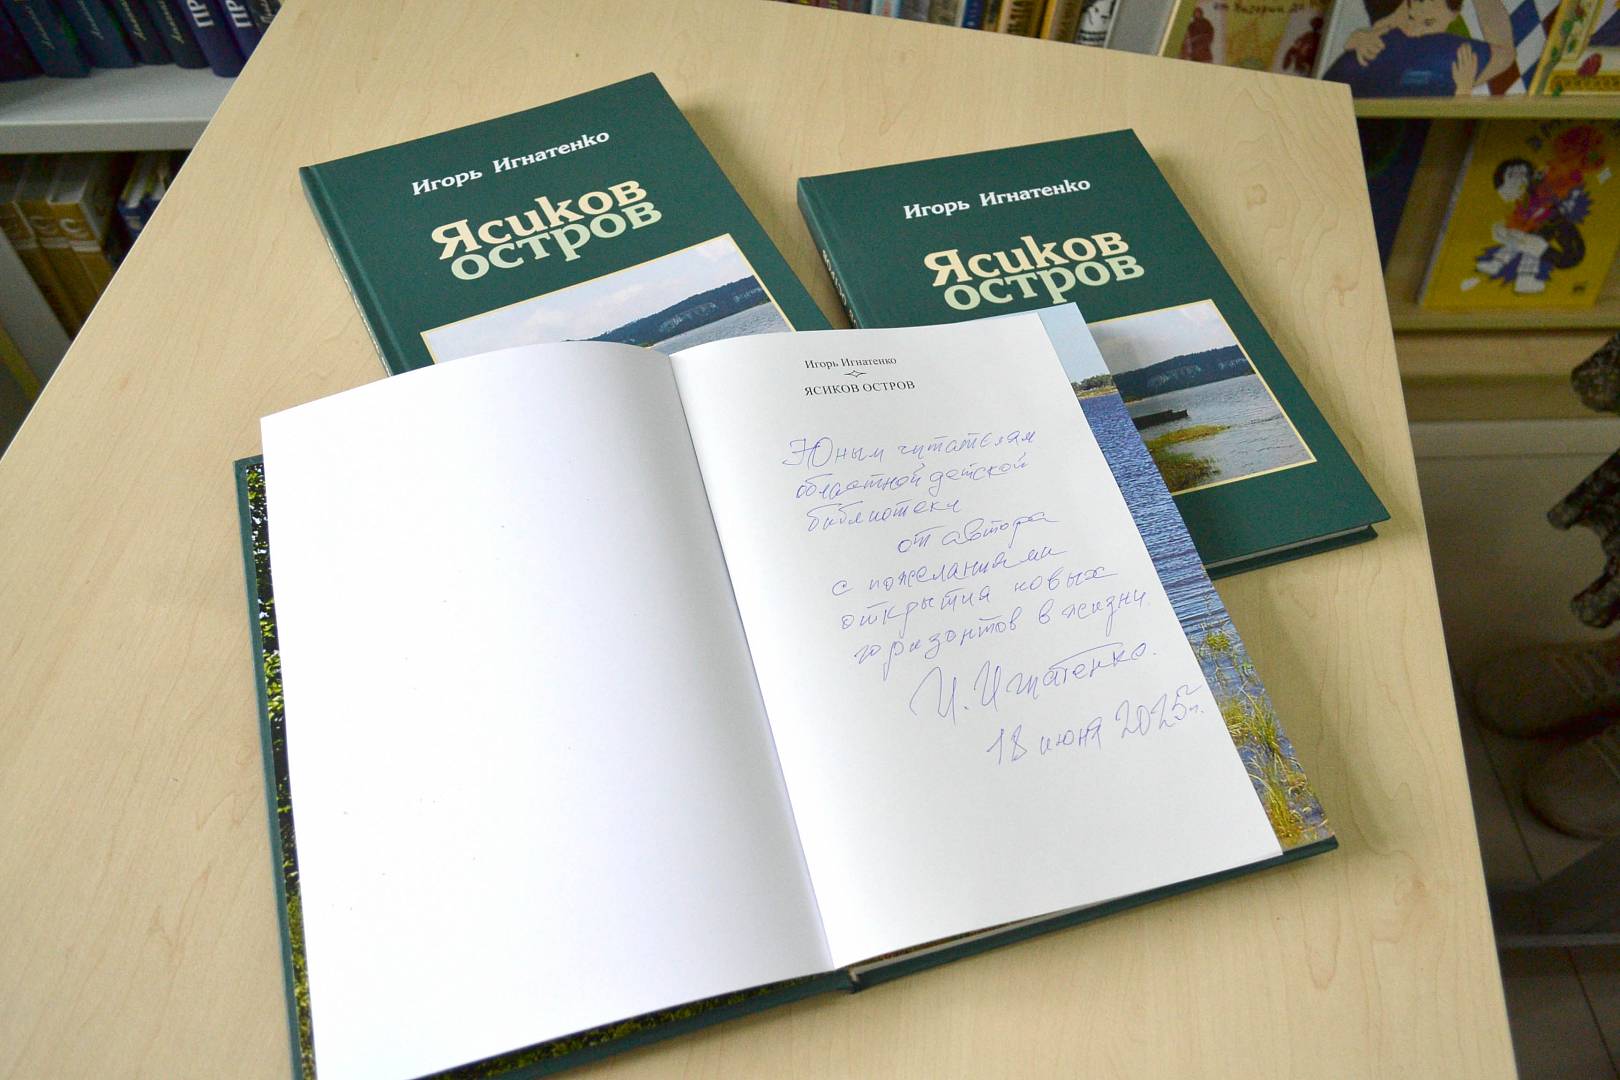 Игорь Игнатенко
Ясиков
остров
Игорь Игнатенко
Ясиков
остров
Игорь Игнатенко
ЯСИКОВ ОСТРОВ
Юным читателям
областной детской
библиотеки
от автора
с пожеланиями
открытия новых
горизонтов в жизни.
И. Игнатенко.
18 июня 2025 г.